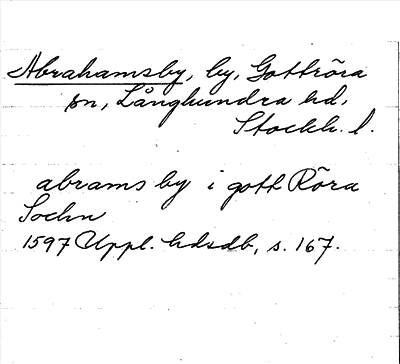 Abrahamsby, by, Gottröra
sn, Långhundra hd,
Stockh. l.
abrams by i gott Röra
Sochn
1597 Uppl. hdsdb, s. 167.